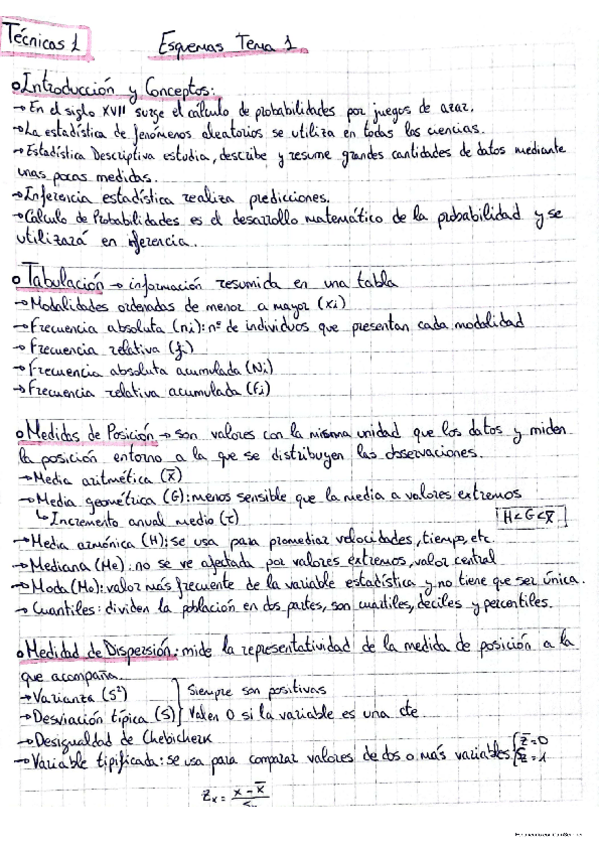 Técnicas 1
Esquemas Tema 1
Introducción y Conceptos:
→ En el siglo XVII surge el cálculo de probabilidades por juegos de azar.
→ La estadística de fenómenos aleatorios se utiliza en todas las ciencias.
→ Estadística Descriptiva estudia, describe y resume grandes cantidades de datos mediante
unas pocas medidas.
→ Inferencia estadística realiza predicciones.
→ Cálculo de Probabilidades es el desarrollo matemático de la probabilidad y se
utilizará en inferencia.
Tabulación → información resumida en una tabla
→ Modalidades ordenadas de menor a mayor (xi)
→ Frecuencia absoluta (ni): nº de individuos que presentan cada modalidad
→ Frecuencia relativa (fi)
→ Frecuencia absoluta acumulada (Ni)
→ Frecuencia relativa acumulada (Fi)
Medidas de Posición → son valores con la misma unidad que los datos y miden
la posición entorno a la que se distribuyen las observaciones.
→ Media aritmética (x̄)
→ Media geométrica (G): menos sensible que la media a valores extremos
↳ Incremento anual medio (r)
H<G<x̄
→ Media armónica (H): se usa para promediar velocidades, tiempo, etc.
→ Mediana (Me): no se ve afectada por valores extremos, valor central
→ Moda (Mo): valor más frecuente de la variable estadística y no tiene que ser única.
→ Cuantiles: dividen la población en dos partes, son cuartiles, deciles y percentiles.
Medidad de Dispersión: mide la representatividad de la medida de posición a la
que acompaña.
→ Varianza (S²)
Siempre son positivas
→ Desviación típica (S)
Valen 0 si la variable es una cte
→ Desigualdad de Chebicherk
→ Variable tipificada: se usa para comparar valores de dos o más variables
z̄=0
=1
Zx = x - x̄